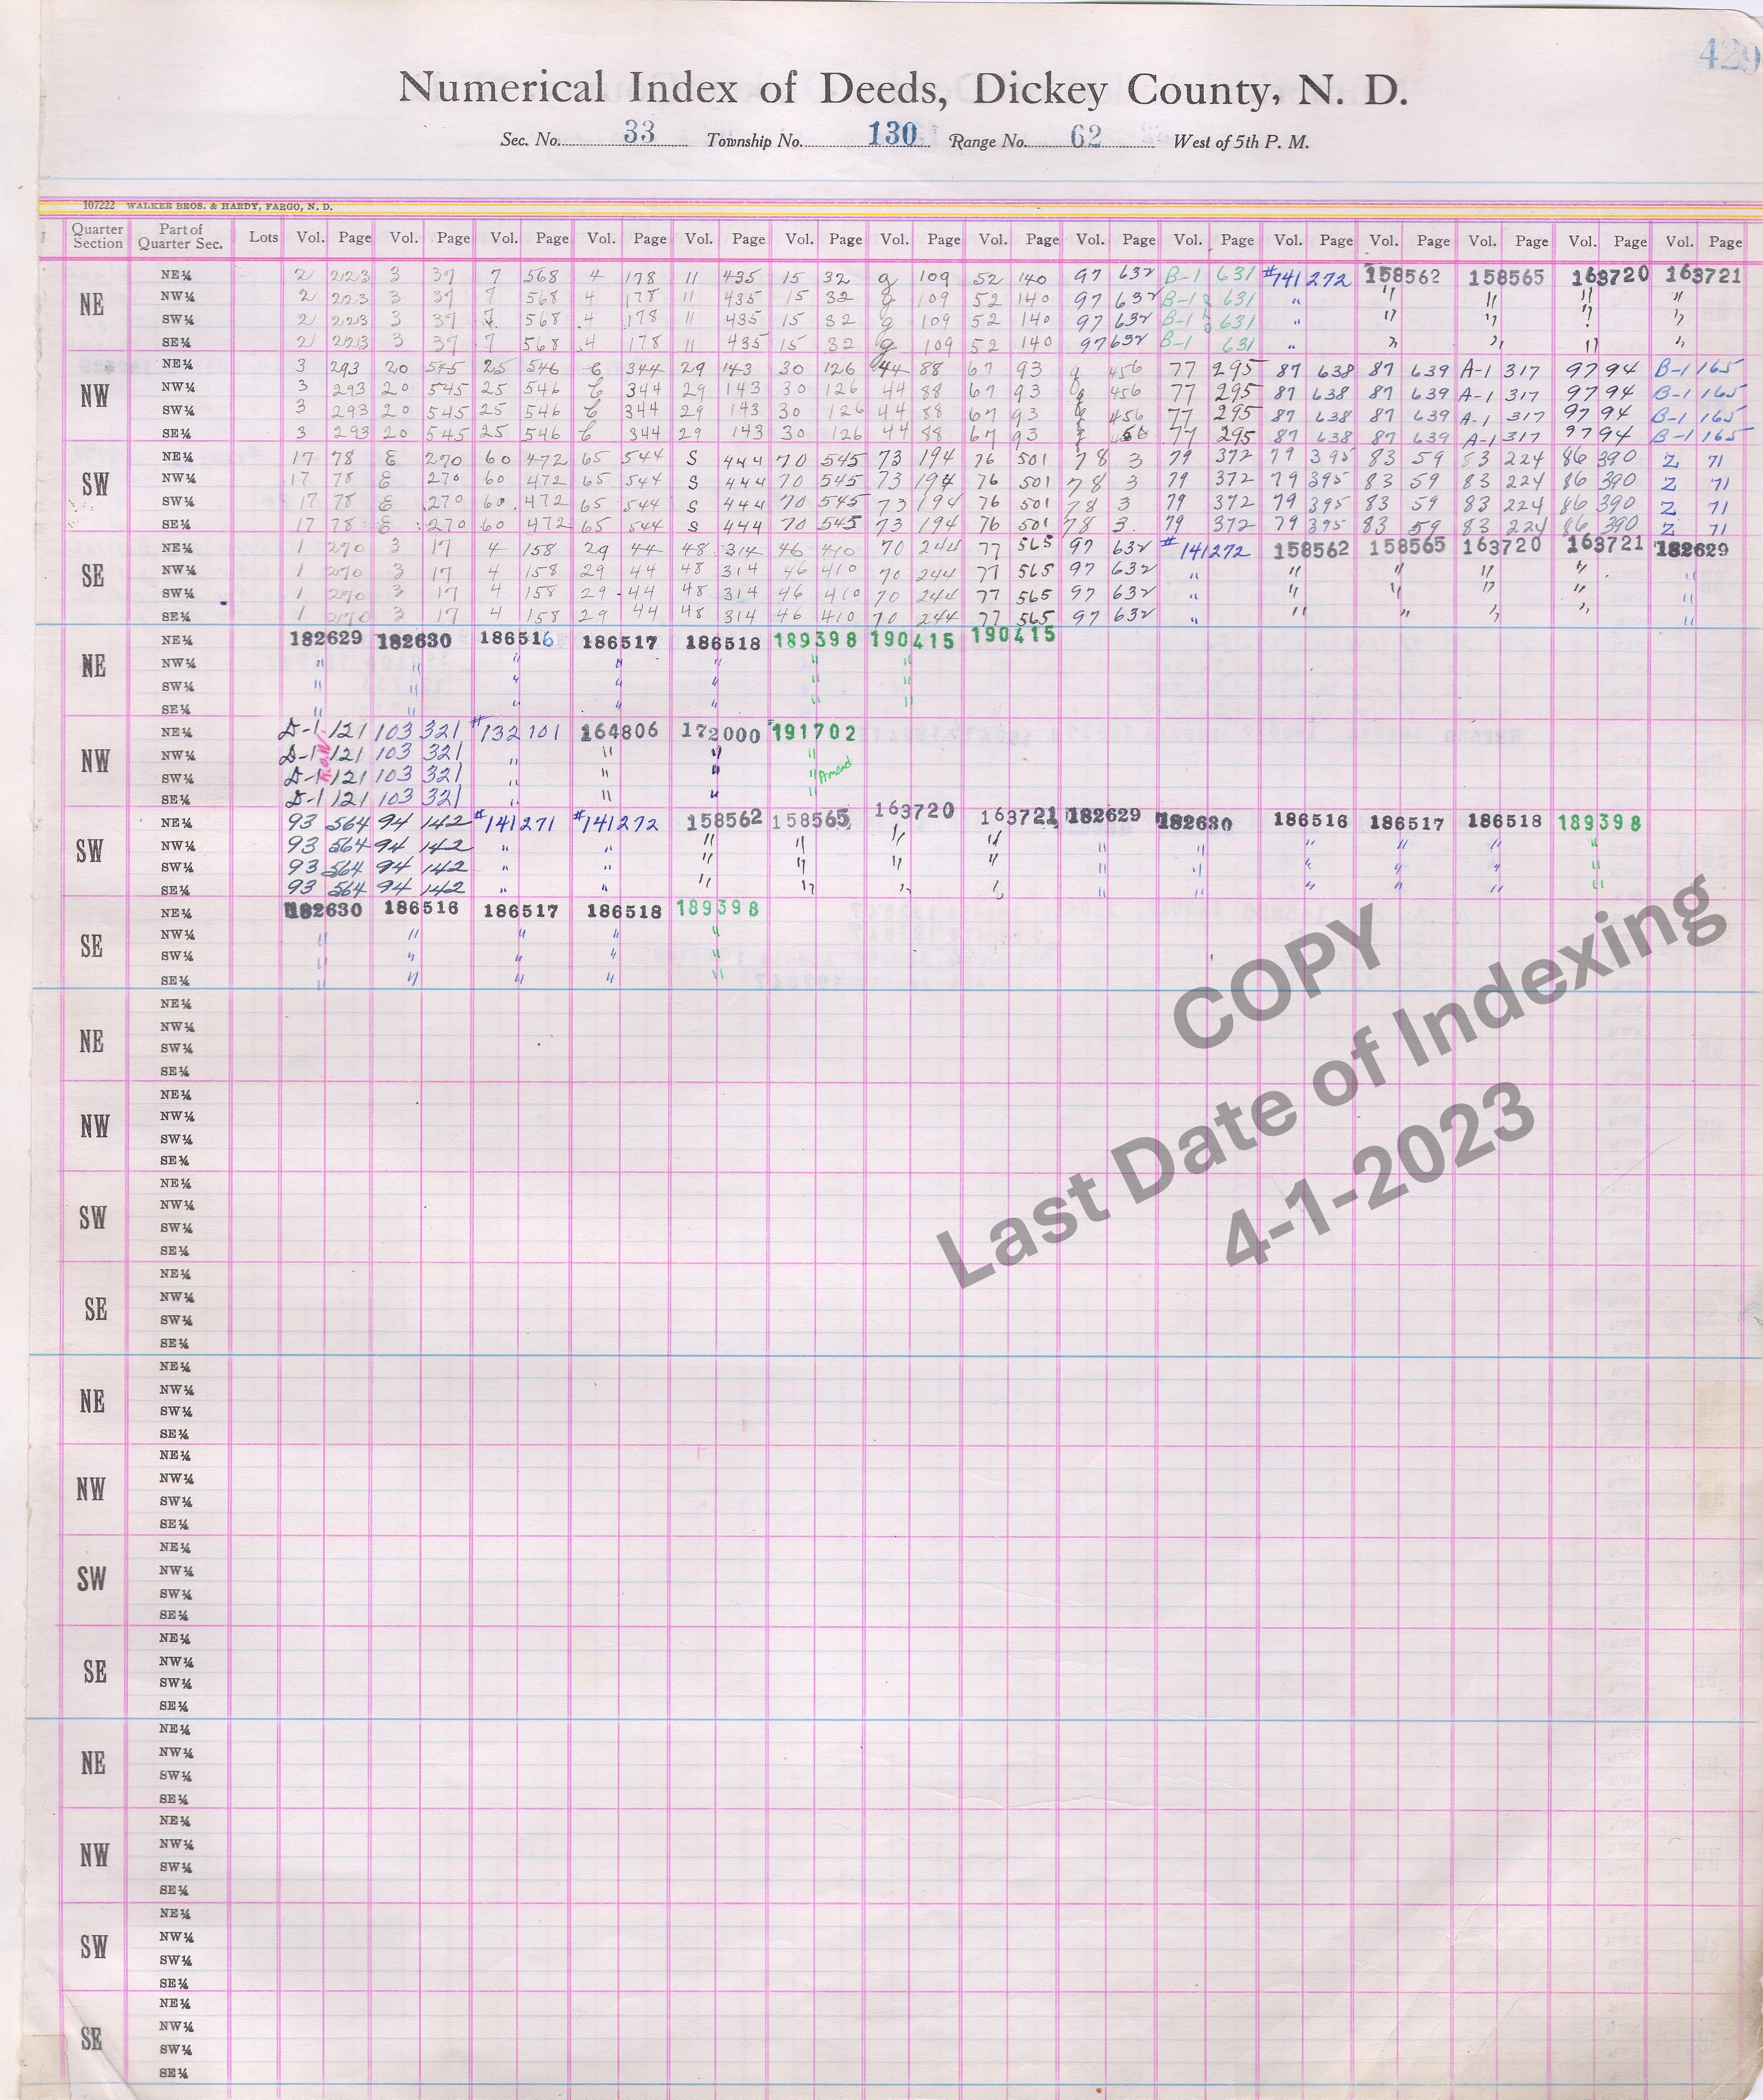 429
Numerical Index of Deeds, Dickey County, N. D.
Sec. No. 33 Township No. 130 Range No. 62 West of 5th P. M.
107222 WALKER BROS. & HARDY, FARGO, N. D.
Quarter Section Part of Quarter Sec. Lots Vol. Page Vol. Page Vol. Page Vol. Page Vol. Page Vol. Page Vol. Page Vol. Page Vol. Page Vol. Page Vol. Page Vol. Page Vol. Page Vol. Page Vol. Page
NE
NE¼ 2 223 3 39 7 568 4 178 11 435 15 32 g 109 52 140 97 632 B-1 631 #141272 158562 158565 163720 163721
NW¼ 2 223 3 39 7 568 4 178 11 435 15 32 g 109 52 140 97 632 B-1 631 " " " " "
SW¼ 2 223 3 39 7 568 4 178 11 435 15 32 g 109 52 140 97 632 B-1 631 " " " " "
SE¼ 2 223 3 39 7 568 4 178 11 435 15 32 g 109 52 140 97 632 B-1 631 " " " " "
NW
NE¼ 3 293 20 545 25 546 344 29 143 30 126 44 88 67 93 456 77 295 87 638 87 639 A-1 317 97 94 B-1 165
NW¼ 3 293 20 545 25 546 344 29 143 30 126 44 88 67 93 456 77 295 87 638 87 639 A-1 317 97 94 B-1 165
SW¼ 3 293 20 545 25 546 344 29 143 30 126 44 88 67 93 456 77 295 87 638 87 639 A-1 317 97 94 B-1 165
SE¼ 3 293 20 545 25 546 344 29 143 30 126 44 88 67 93 77 295 87 638 87 639 A-1 317 97 94 B-1 165
SW
NE¼ 17 78 E 270 60 472 65 544 S 444 70 545 73 194 76 501 78 3 79 372 79 395 83 59 83 224 86 390 Z 71
NW¼ 17 78 E 270 60 472 65 544 S 444 70 545 73 194 76 501 78 3 79 372 79 395 83 59 83 224 86 390 Z 71
SW¼ 17 78 E 270 60 472 65 544 S 444 70 545 73 194 76 501 78 3 79 372 79 395 83 59 83 224 86 390 Z 71
SE¼ 17 78 E 270 60 472 65 544 S 444 70 545 73 194 76 501 78 3 79 372 79 395 83 59 83 224 86 390 Z 71
SE
NE¼ 1 270 3 17 4 158 29 44 48 314 46 410 70 244 77 565 97 632 #141272 158562 158565 163720 163721 182629
NW¼ 1 270 3 17 4 158 29 44 48 314 46 410 70 244 77 565 97 632 " " " " " "
SW¼ 1 270 3 17 4 158 29 44 48 314 46 410 70 244 77 565 97 632 " " " " " "
SE¼ 1 270 3 17 4 158 29 44 48 314 46 410 70 244 77 565 97 632 " " " " " "
NE
NE¼ 182629 182630 186516 186517 186518 189398 190415 190415
NW¼ " " " " " " "
SW¼ " " " " " " "
SE¼ " " " " " " "
NW
NE¼ D-1 121 103 321 #132101 164806 172000 #191702
NW¼ D-1 121 103 321 " " " "
SW¼ D-1 121 103 321 " " " " Amend
SE¼ D-1 121 103 321 " " " "
R.O.W.
SW
NE¼ 93 564 94 142 #141271 #141272 158562 158565 163720 163721 182629 182630 186516 186517 186518 189398
NW¼ 93 564 94 142 " " " " " " " " " " " "
SW¼ 93 564 94 142 " " " " " " " " " " " "
SE¼ 93 564 94 142 " " " " " " " " " " " "
SE
NE¼ 182630 186516 186517 186518 189398
NW¼ " " " " "
SW¼ " " " " "
SE¼ " " " " "
NE
NE¼
NW¼
SW¼
SE¼
NW
NE¼
NW¼
SW¼
SE¼
SW
NE¼
NW¼
SW¼
SE¼
SE
NE¼
NW¼
SW¼
SE¼
NE
NE¼
NW¼
SW¼
SE¼
NW
NE¼
NW¼
SW¼
SE¼
SW
NE¼
NW¼
SW¼
SE¼
SE
NE¼
NW¼
SW¼
SE¼
NE
NE¼
NW¼
SW¼
SE¼
NW
NE¼
NW¼
SW¼
SE¼
SW
NE¼
NW¼
SW¼
SE¼
SE
NE¼
NW¼
SW¼
SE¼
COPY
Last Date of Indexing
4-1-2023